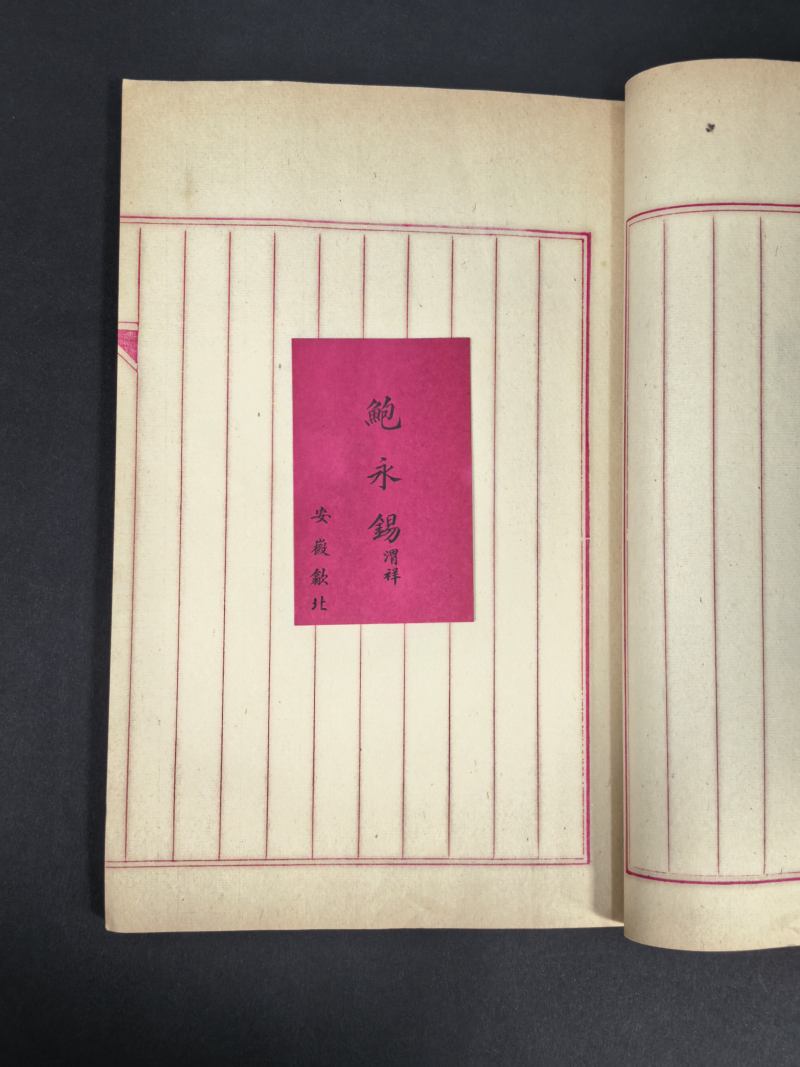 鮑永錫
渭祥
安徽歙北